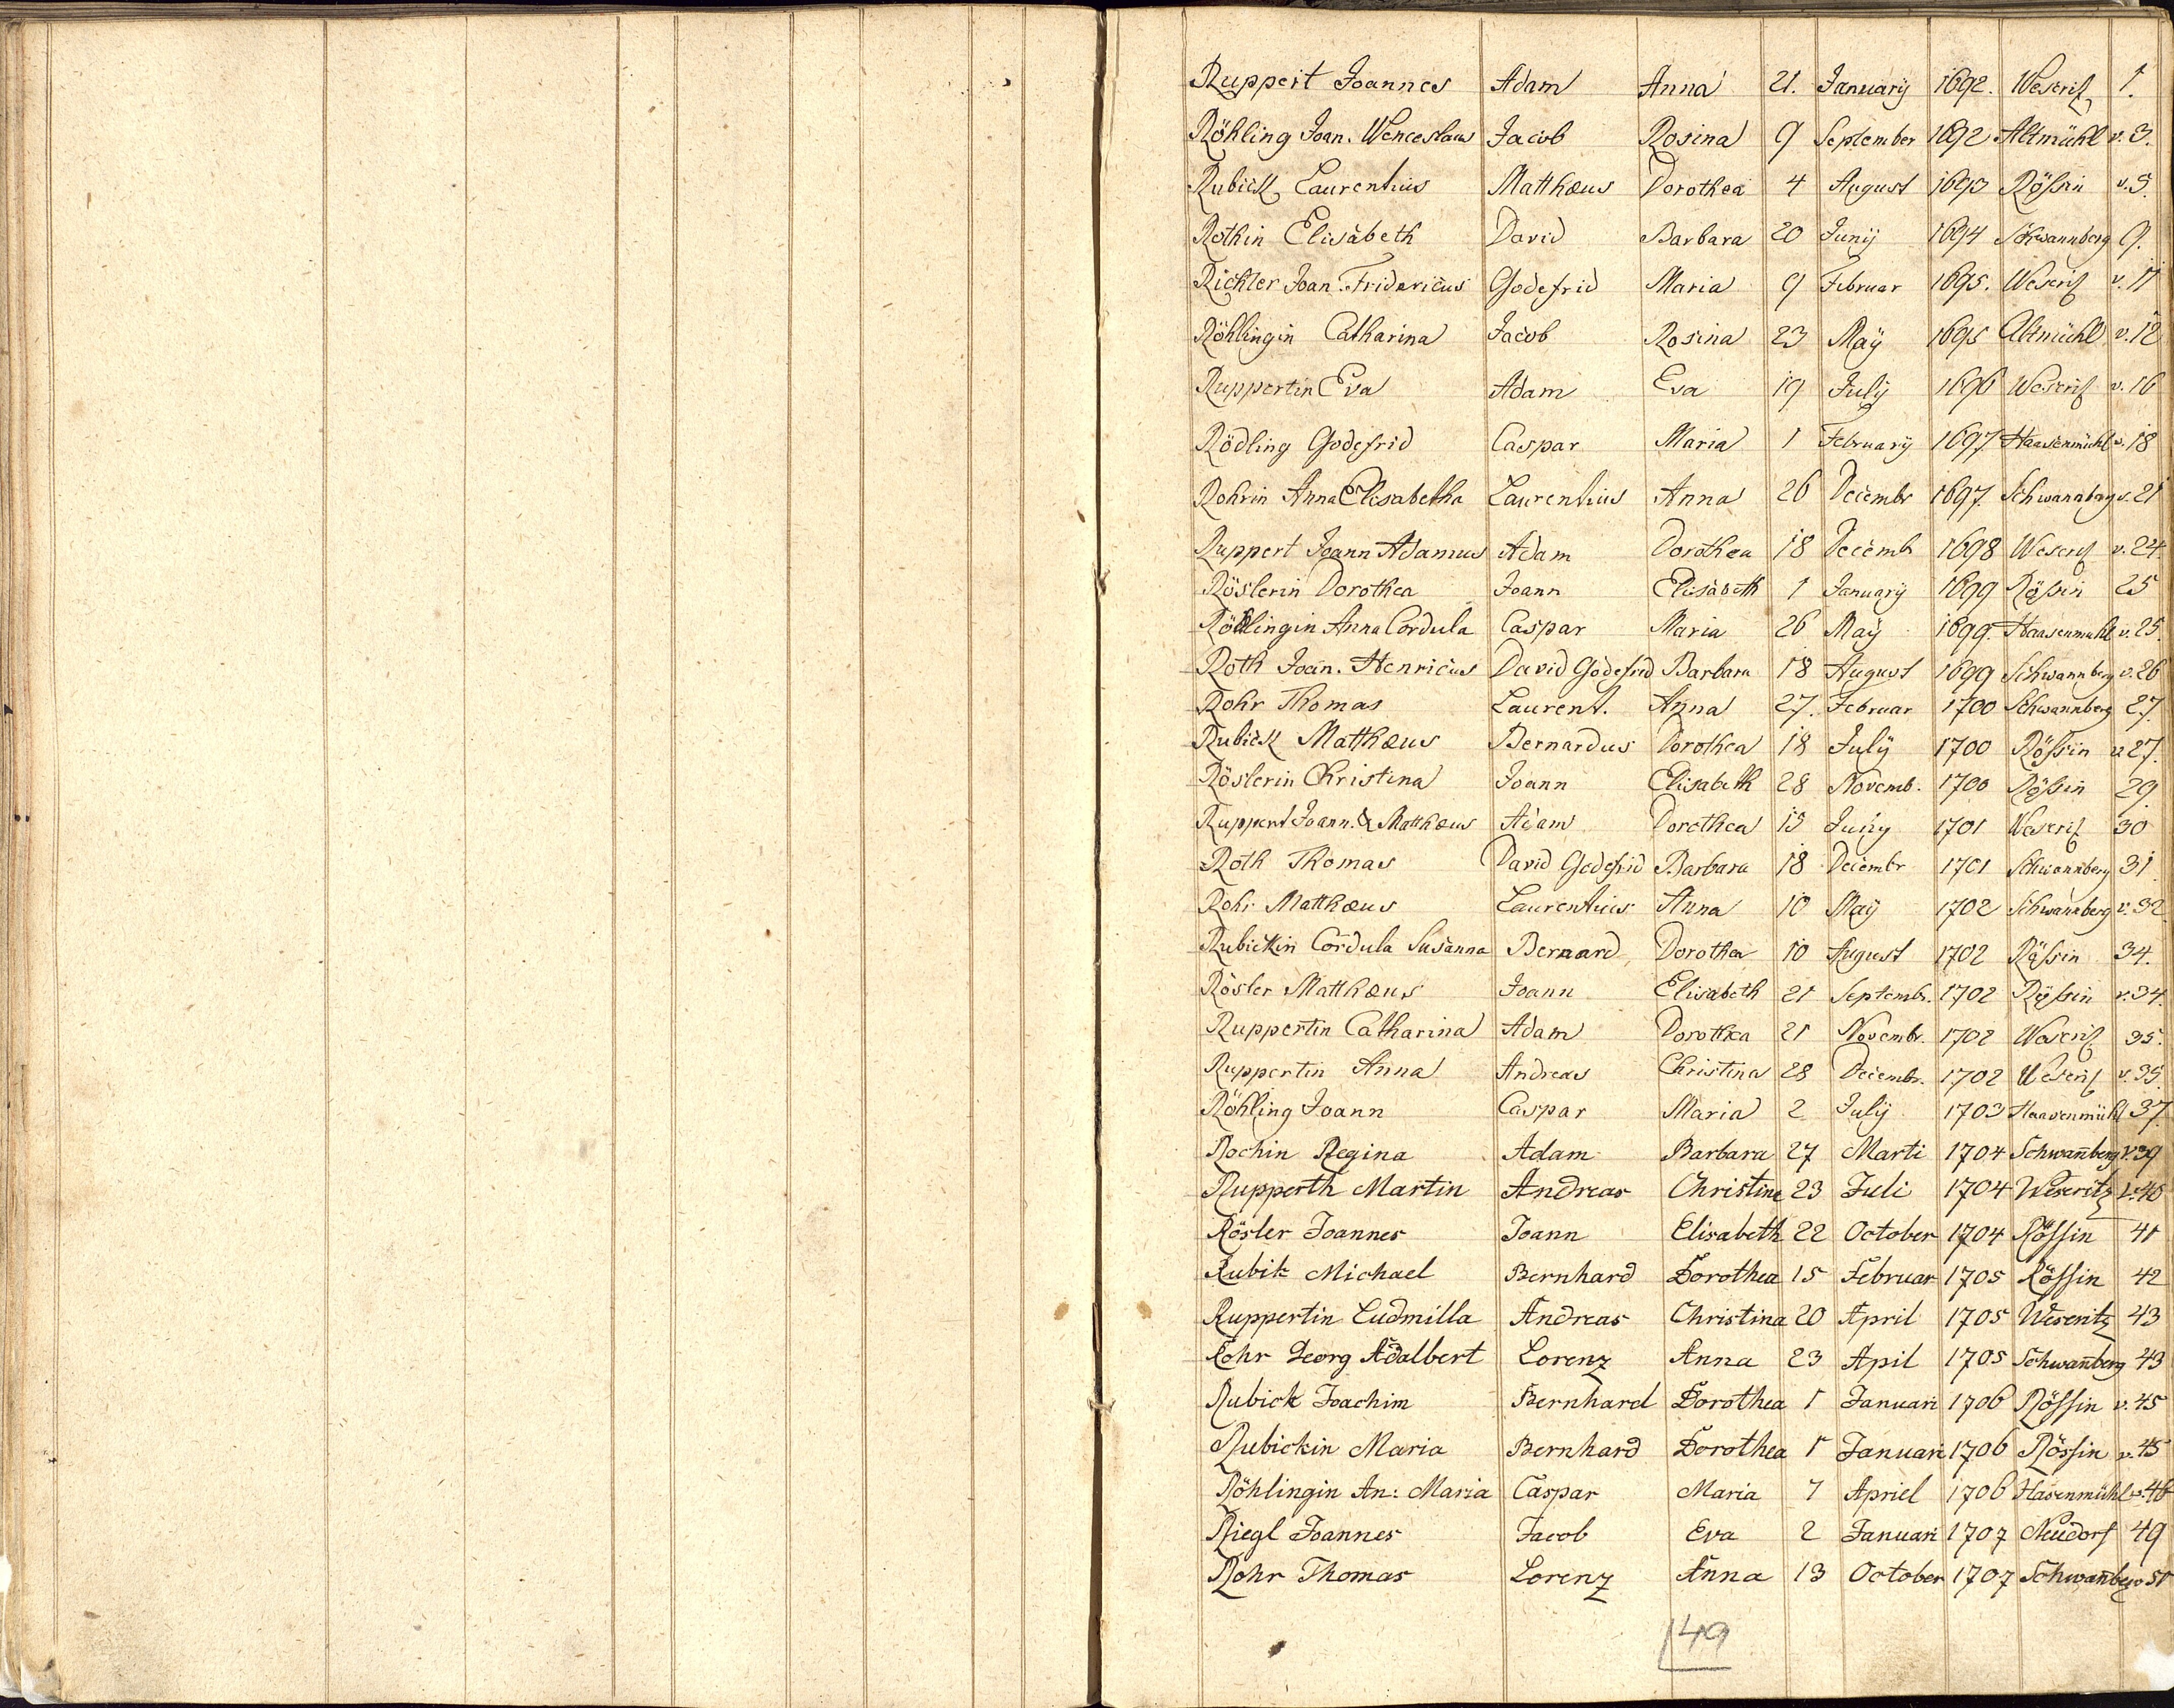 Ruppert Joannes Adam Anna 21. Januarÿ 1692. Weseritz 1.
Röhling Joan. Wenceslaus Jacob Rosina 9 September 1692 Altmühl v. 3.
Rubick Laurentius Matthæus Dorothea 4 August 1693 Rößin v. 5.
Rothin Elisabeth David Barbara 20 Junÿ 1694 Schwannberg 9.
Richter Joan. Fridericus Godefrid Maria 9 Februar 1695. Weseritz v. 11
Röhlingin Catharina Jacob Rosina 23 Maÿ 1695 Altmühl v. 12
Ruppertin Eva Adam Eva 19 Julÿ 1696 Weseritz v. 16
Rödling Godefrid Caspar Maria 1 Februarÿ 1697 Haasenmühl v. 18
Rohrin Anna Elisabetha Laurentius Anna 26 Decembr 1697. Schwannberg v. 21
Ruppert Joann Adamus Adam Dorothea 18 Decemb 1698 Weseritz v. 24.
Röslerin Dorothea Joann Elisabeth 1 Januarÿ 1699 Rößin 25
Rödlingin Anna Cordula Caspar Maria 26 Maÿ 1699. Haasenmuhl v. 25.
Roth Joan. Henricus David Godefrid Barbara 18 August 1699 Schwannberg v. 26
Rohr Thomas Laurent. Anna 27. Februar 1700 Schwannberg 27.
Rubick Matthæus Bernardus Dorothea 18 Julÿ 1700 Rößin v 27.
Röslerin Christina Joann Elisabeth 28 Novemb. 1700 Rößin 29.
Ruppert Joann. & Matthæus Adam Dorothea 15 Junÿ 1701 Weseritz 30
Roth Thomas David Godefrid Barbara 18 Decembr 1701 Schwannberg 31
Rohr Matthæus Laurentius Anna 10 Maÿ 1702 Schwannberg v. 32
Rubickin Cordula Susanna Bernard Dorothea 10 August 1702 Rößin 34.
Rösler Matthæus Joann Elisabeth 21 Septembr. 1702 Rößin v. 34.
Ruppertin Catharina Adam Dorothea 21 Novembr. 1702 Weseritz 35.
Ruppertin Anna Andreas Christina 28 Decembr. 1702 Weseritz v. 35.
Röhling Joann Caspar Maria 2 Julÿ 1703 Haasenmühl 37.
Rochin Regina Adam Barbara 27 Marti 1704 Schwan̄berg v. 39
Rupperth Martin Andreas Christine 23 Juli 1704 Weseritz v. 40
Rösler Joannes Joann Elisabeth 22 October 1704 Rössin 41
Rubik Michael Bernhard Dorothea 15 Februar 1705 Rössin 42
Ruppertin Ludmilla Andreas Christina 20 April 1705 Weseritz 43
Rohr Georg Adalbert Lorenz Anna 23 Apil 1705 Schwan̄berg 43
Rubick Joachim Bernhard Dorothea 1 Januari 1706 Rössin v. 45
Rubickin Maria Bernhard Dorothea 1 Januari 1706 Rössin v. 45
Röhlingin An: Maria Caspar Maria 7 Apriel 1706 Hasenmühl v. 46
Riegl Joannes Jacob Eva 2 Januari 1707 Neudorf 49
Rohr Thomas Lorenz Anna 13 October 1707 Schwan̄berg v 51
49